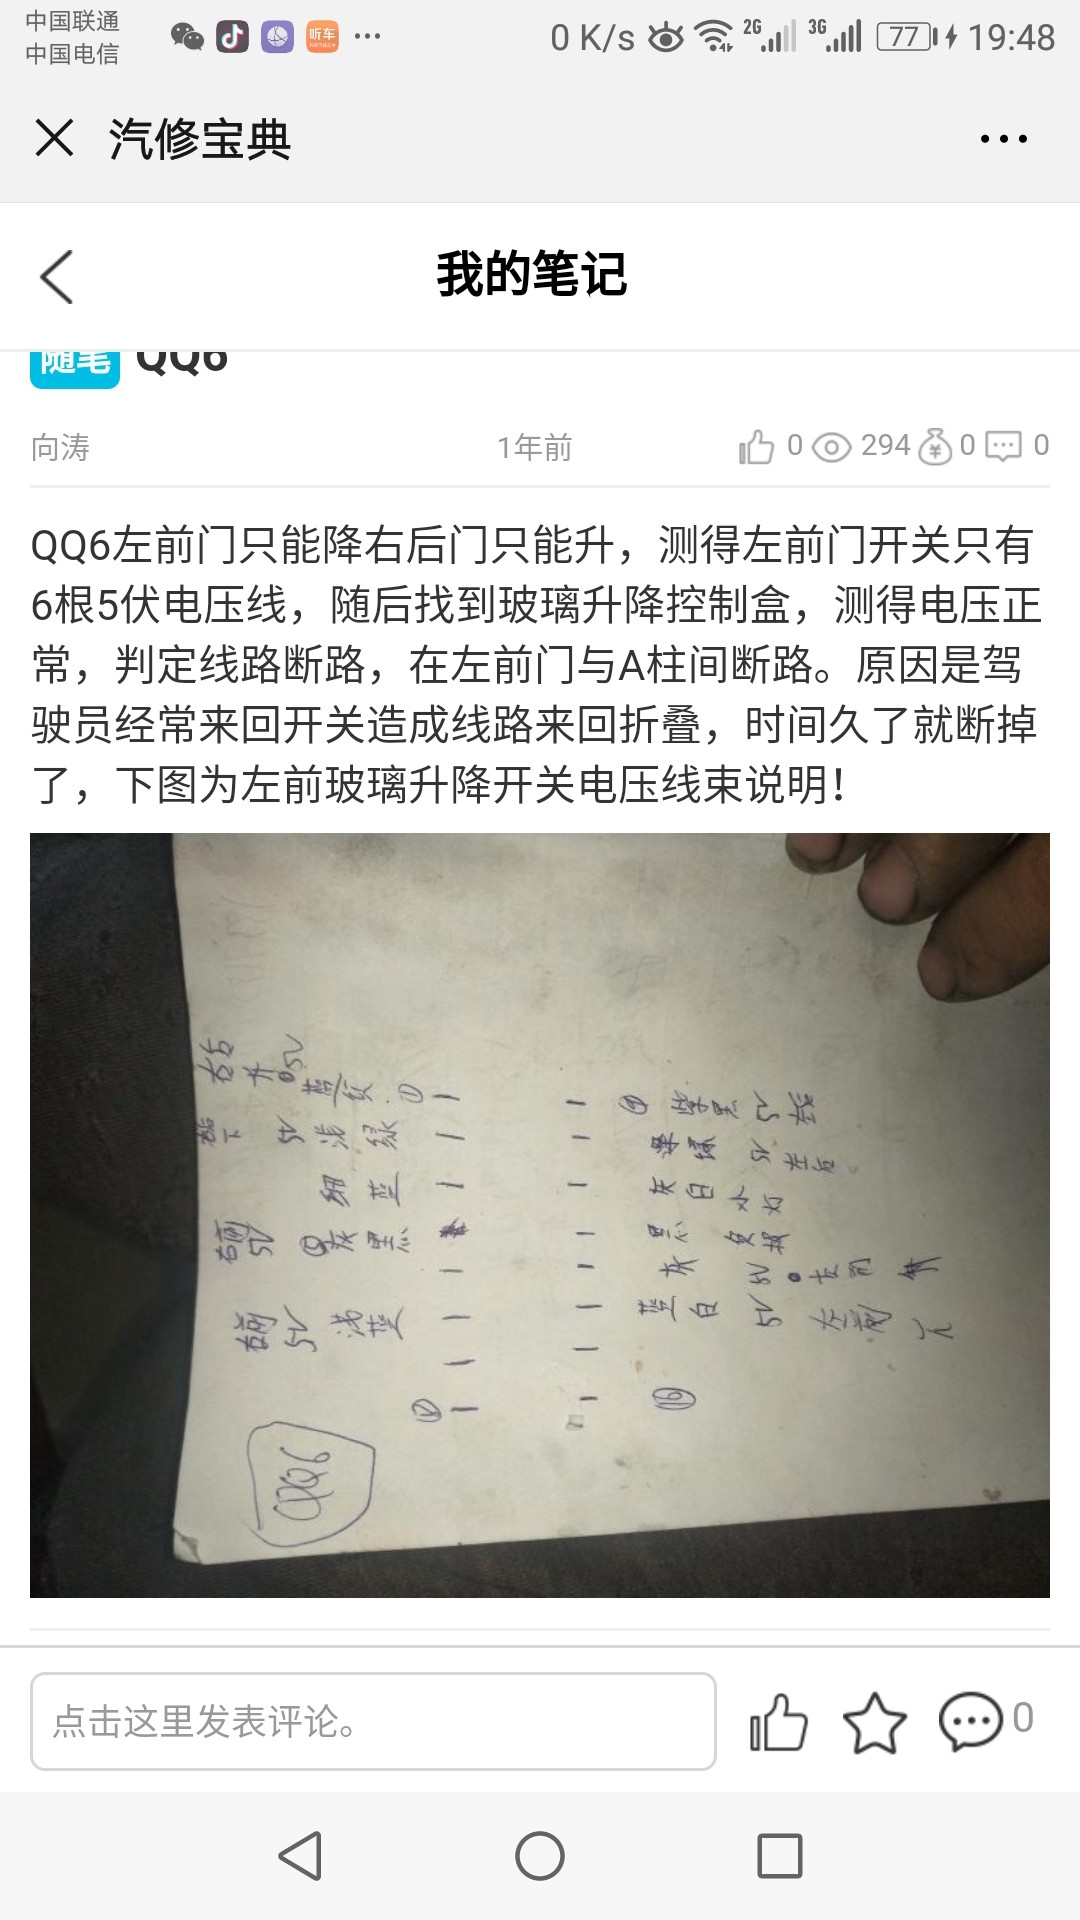 中国联通
中国电信
听车
0 K/s
2G
3G
77
19:48
汽修宝典
我的笔记
随笔 QQ6
向涛 1年前 0 294 0 0
QQ6左前门只能降右后门只能升，测得左前门开关只有
6根5伏电压线，随后找到玻璃升降控制盒，测得电压正
常，判定线路断路，在左前门与A柱间断路。原因是驾
驶员经常来回开关造成线路来回折叠，时间久了就断掉
了，下图为左前玻璃升降开关电压线束说明！
右后 升 5V
①
5V 浅绿
细蓝
右前 5V 灰黑
右前 5V 浅蓝
⑨
灰白 小灯
黑
灰 5V 左前 升
蓝白 5V 左前
⑯
QQ6
点击这里发表评论。
0